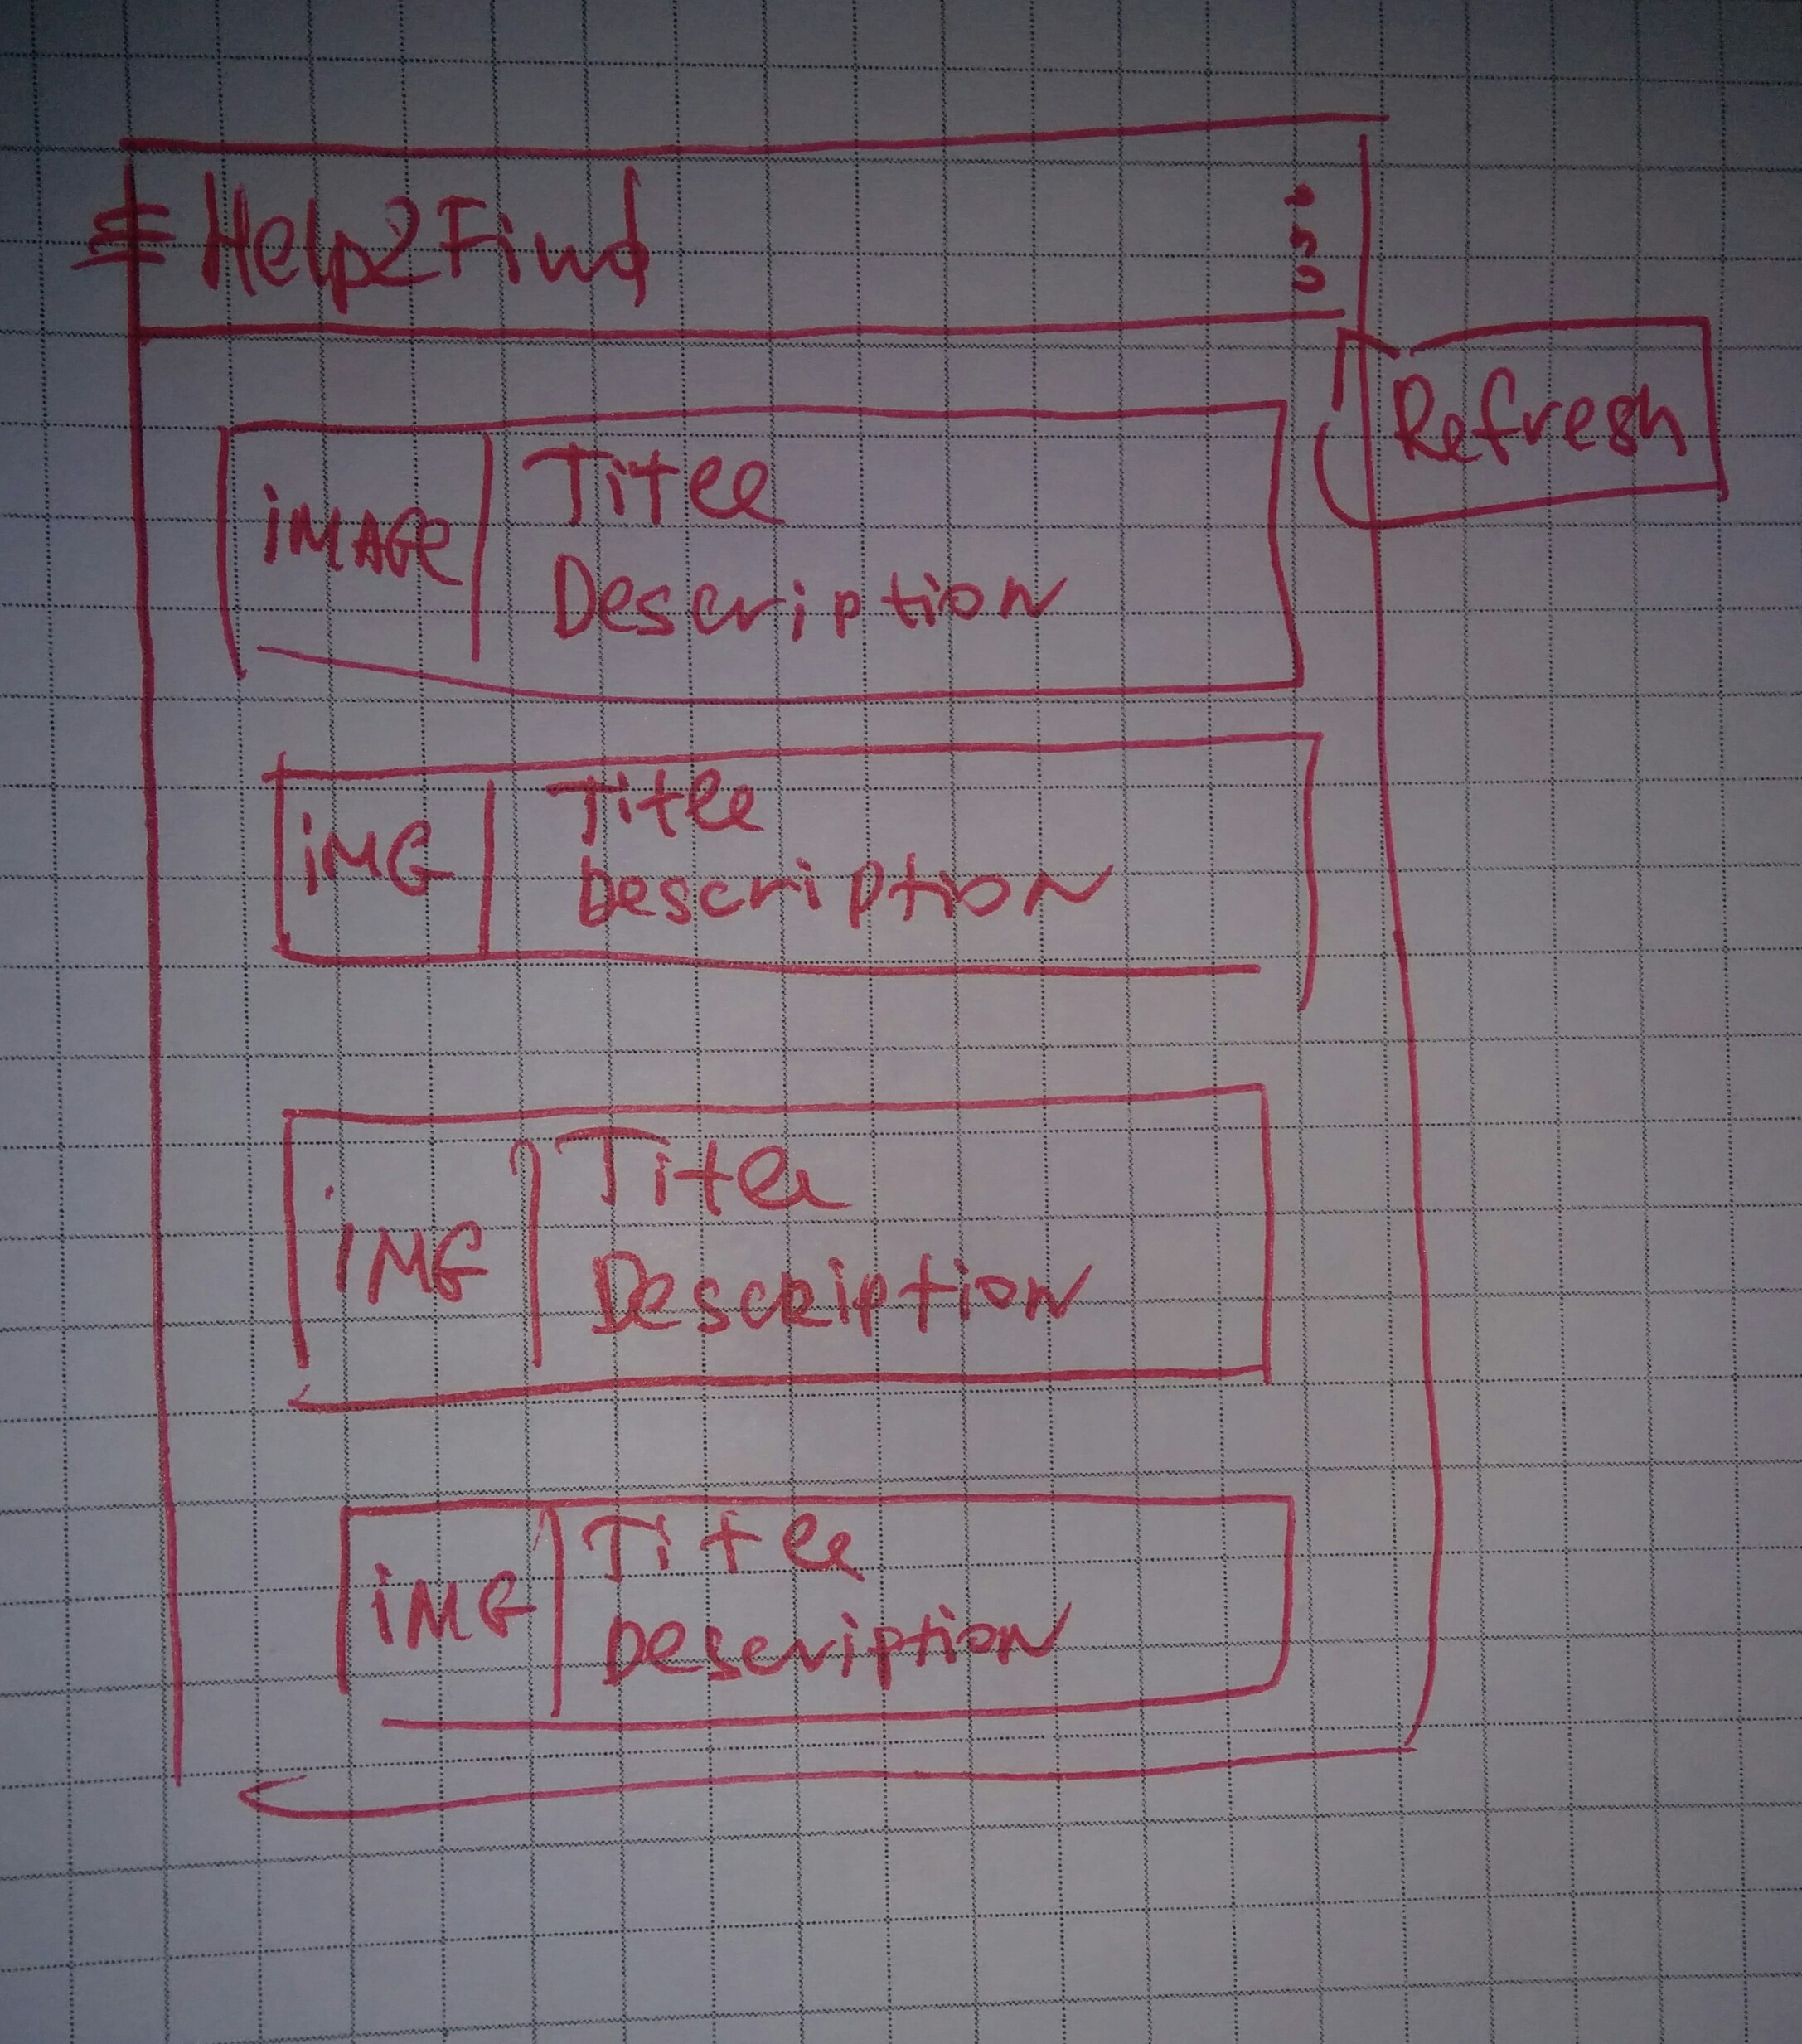 Help2Find
Refresh
iMAGe Title
Description
iMG Title
Description
iMG Title
Description
iMG Title
Description